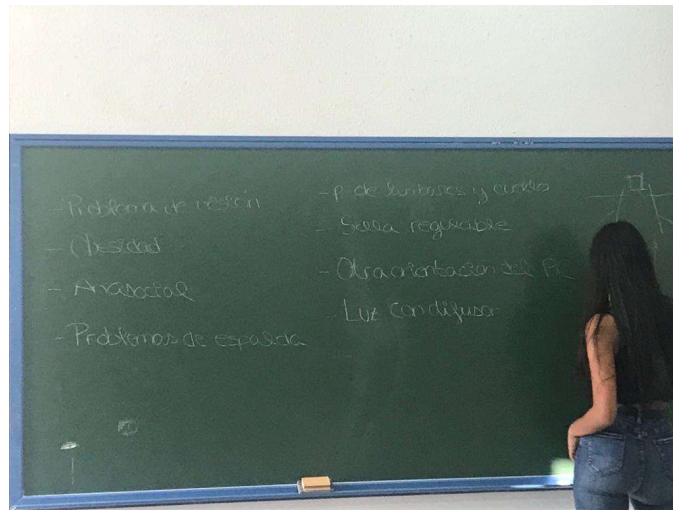 - Problema de visión
- Obesidad
- Anasocial
- Problemas de espalda
- P. de lumbares y cuello
- Silla regulable
- Otra orientación del PC
- Luz con difusor